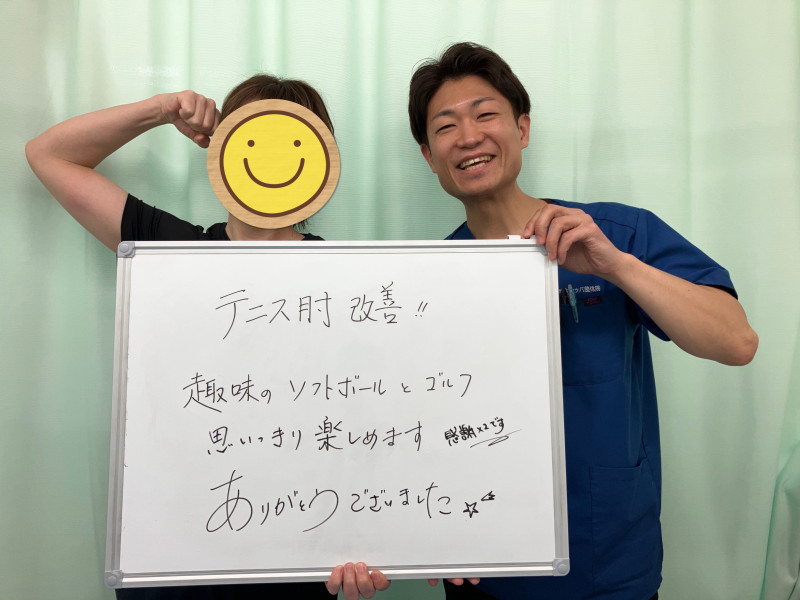 テニス肘 改善!!
趣味の ソフトボールと ゴルフ
思いっきり 楽しめます 感謝××です
ありがとうございました☆